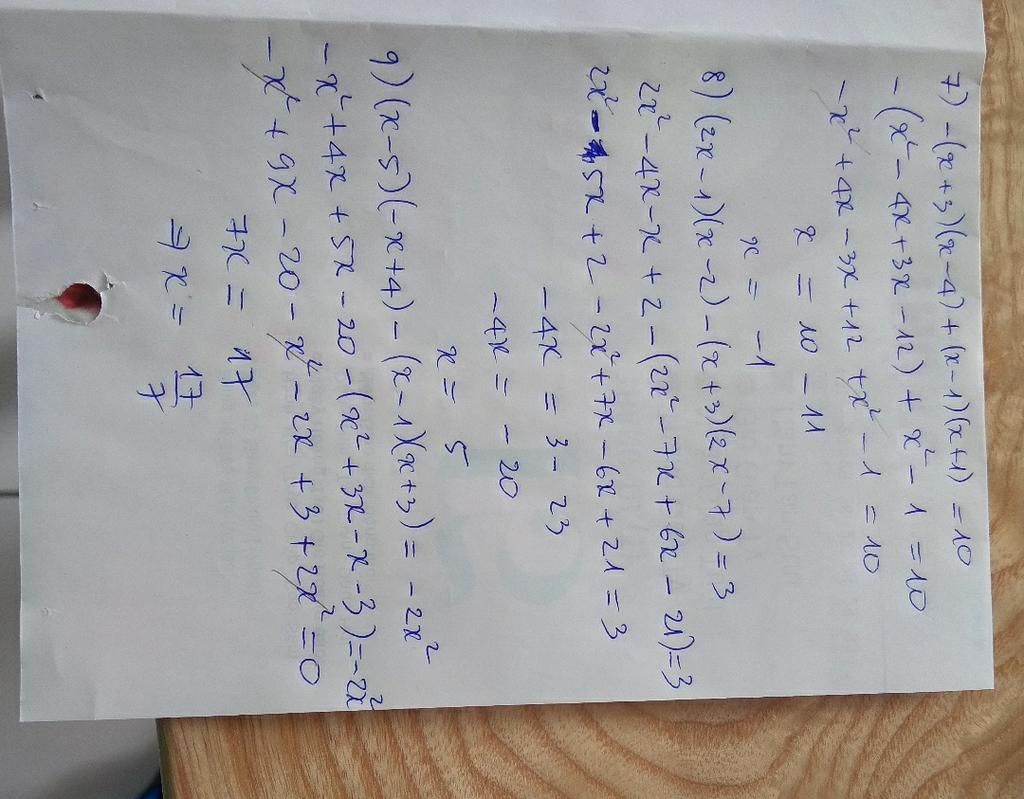 7) -(x+3)(x-4)+(x-1)(x+1) = 10
-(x² - 4x + 3x - 12) + x² - 1 = 10
-x² + 4x - 3x + 12 + x² - 1 = 10
x = 10 - 11
x = -1
8) (2x-1)(x-2) - (x+3)(2x-7) = 3
2x² - 4x - x + 2 - (2x² - 7x + 6x - 21) = 3
2x² - 5x + 2 - 2x² + 7x - 6x + 21 = 3
-4x = 3 - 23
-4x = -20
x = 5
9) (x-5)(-x+4) - (x-1)(x+3) = -2x²
-x² + 4x + 5x - 20 - (x² + 3x - x - 3) = -2x²
-x² + 9x - 20 - x² - 2x + 3 + 2x² = 0
7x = 17
⇒ x = 17/7